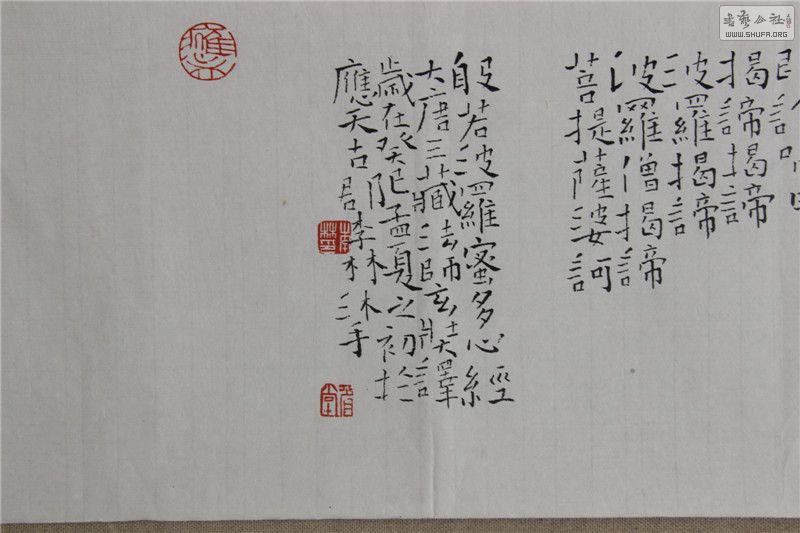 揭諦揭諦
波羅揭諦
波羅僧揭諦
菩提薩婆訶
般若波羅蜜多心經
大唐三藏法師玄奘譯
歲在癸巳孟夏之初於
應天古居李林沐手
書藝公社
WWW.SHUFA.ORG